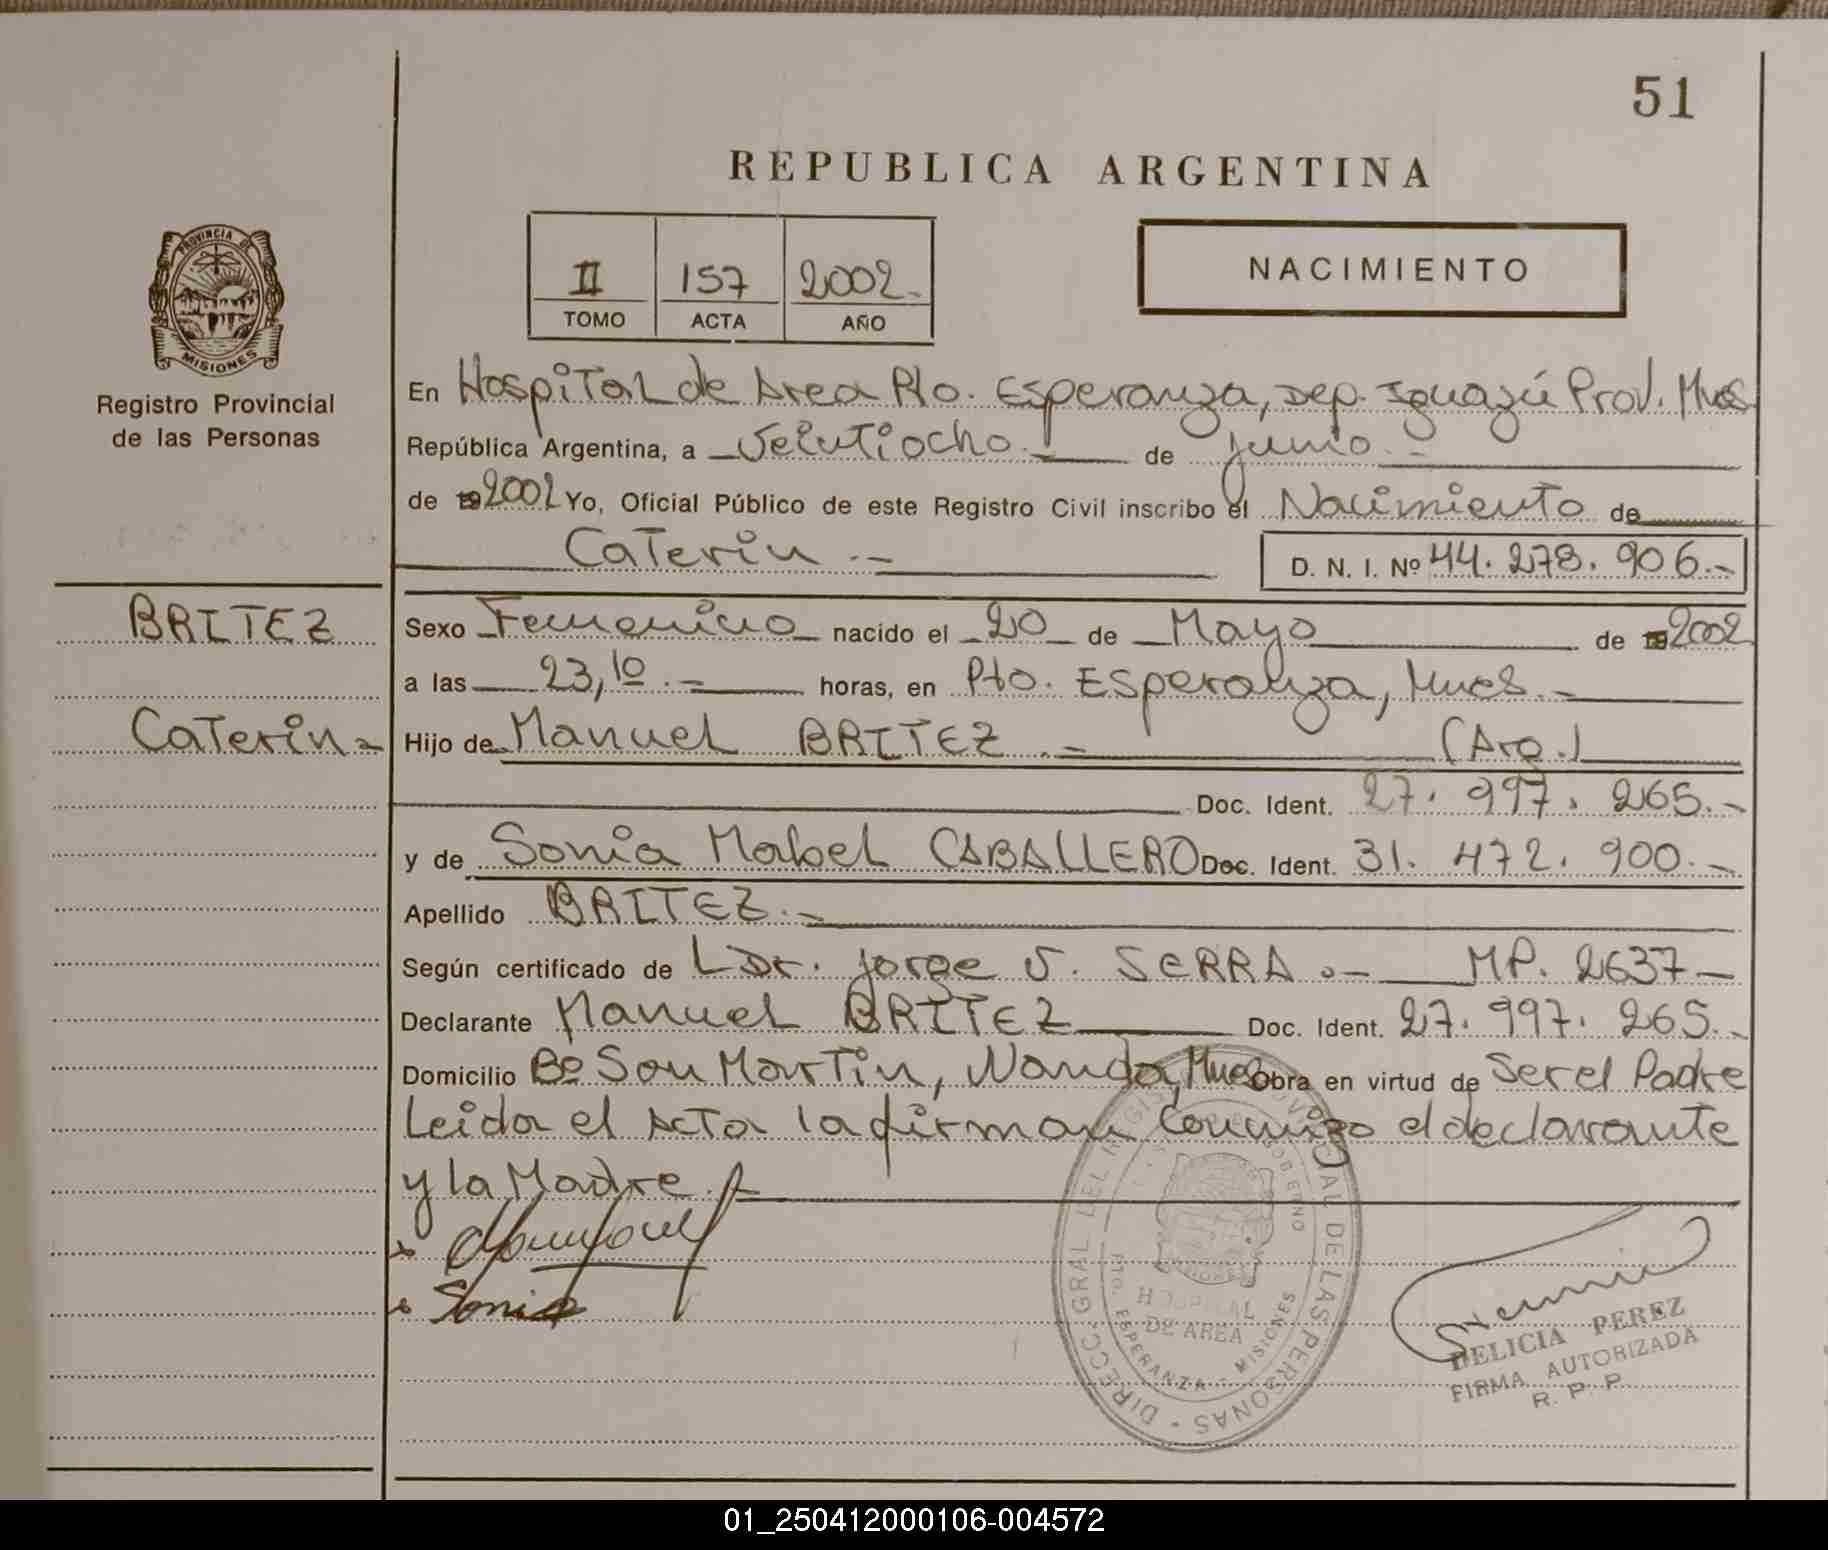 51
REPUBLICA ARGENTINA
II 157 2002.
TOMO ACTA AÑO
NACIMIENTO
PROVINCIA DE
MISIONES
Registro Provincial
de las Personas
En Hospital de Area Pto. Esperanza, Dep. Iguazú Prov. Mnes
República Argentina, a Veintiocho.- de junio.-
de 19 2002 Yo, Oficial Público de este Registro Civil inscribo el Nacimiento de
Caterin.- D. N. I. Nº 44.278.906.-
BRITEZ
Caterin-
Sexo Femenino nacido el 20 de Mayo de 19 2002
a las 23,10.- horas, en Pto. Esperanza, Mnes.-
Hijo de Manuel BRITEZ.- (Arg.)
Doc. Ident. 27.997.265.-
y de Sonia Mabel CABALLERO Doc. Ident. 31.472.900.-
Apellido BRITEZ.-
Según certificado de Dr. Jorge V. SERRA.- MP. 2637-
Declarante Manuel BRITEZ Doc. Ident. 27.997.265.-
Domicilio Bº San Martin, Wanda, Mnes Obra en virtud de Ser el Padre
Leida el Acta la firman conmigo el declarante
y la Madre.-
Sonia
DIRECC. GRAL. DEL REGISTRO PROVINCIAL DE LAS PERSONAS
HOSPITAL
DE AREA
PTO. ESPERANZA - MISIONES
DELICIA PEREZ
FIRMA AUTORIZADA
R. P. P.
01_250412000106-004572